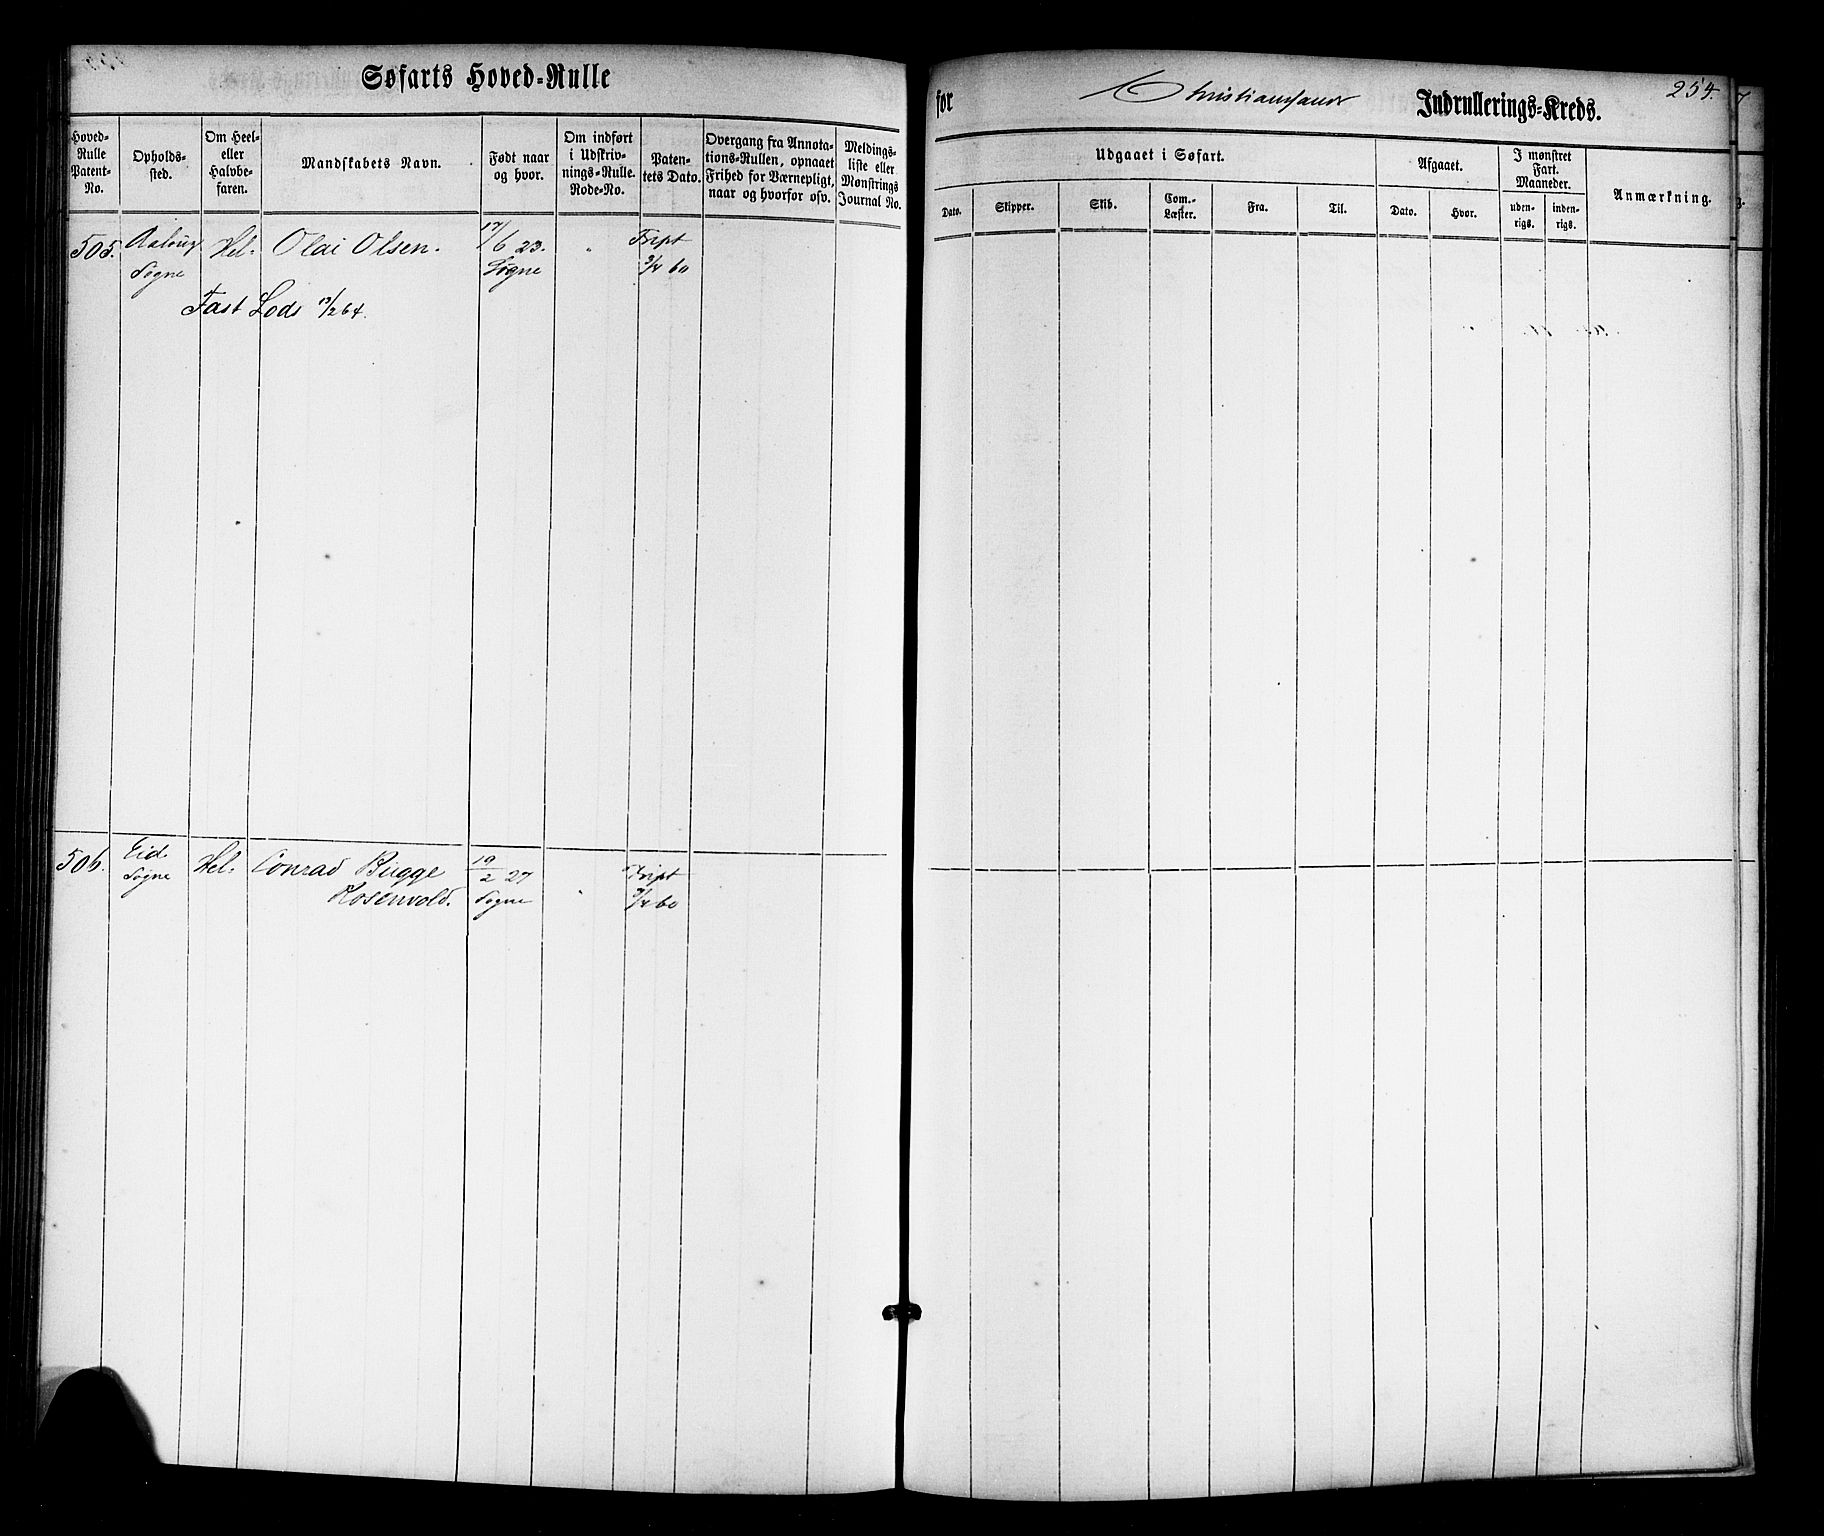 Søfarts Hoved-Rulle
for Christianssand Indrullerings-Kreds.
254.
Hoved-Rulle Patent-No.
Opholds-sted.
Om Heel- eller Halvbe-faren.
Mandskabets Navn.
Født naar og hvor.
Om indført i Udskriv-nings-Rulle. Rode-No.
Paten-tets Dato.
Overgang fra Annota-tions-Rullen, opnaaet Frihed for Værnepligt, naar og hvorfor osv.
Meldings-liste eller Mønstrings Journal No.
Udgaaet i Søfart.
Dato.
Skipper.
Skib.
Com.-Læster.
Fra.
Til.
Afgaaet.
Dato.
Hvor.
I mønstret Fart. Maaneder.
uden-rigs.
inden-rigs.
Anmærkning.
505.
Søgne
Hel.
Olai Olsen.
17/6 23.
Søgne
"
3/4 60
Fast Lods 13/2 64.
506.
Eid
Søgne
Hel.
Conrad Bugge
Rosenvold.
19/2 27
Søgne
"
3/4 60